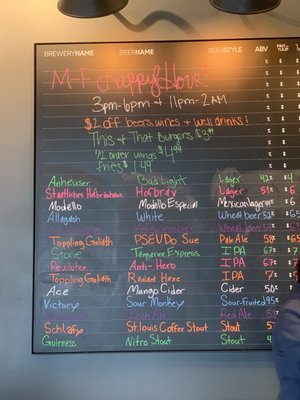 BREWERYNAME BEERNAME BEERSTYLE ABV
M-F Happy Hour!
3pm-6pm + 11pm-2AM
$2 off beers, wines + well drinks!
This & That Burgers $3.99
1/2 order wings $4.99
fries $1.49
Anheuser Bud Light Lager 4.2% $4
Hofbrau Lager
Modello Modello Especial Mexican lager
Allagash White Wheat beer 5.2
Toppling Goliath PSEUDO Sue Pale Ale 5.8
Stone Tangerine Express IPA 6.7
Revolution Anti-Hero IPA
Toppling Goliath IPA
Ace Mango Cider Cider 5.0%
Victory Sour Monkey Sour-fruited 9.5%
Irish Ale Red Ale
Schlafly St. Louis Coffee Stout Stout
Guinness Nitro Stout Stout